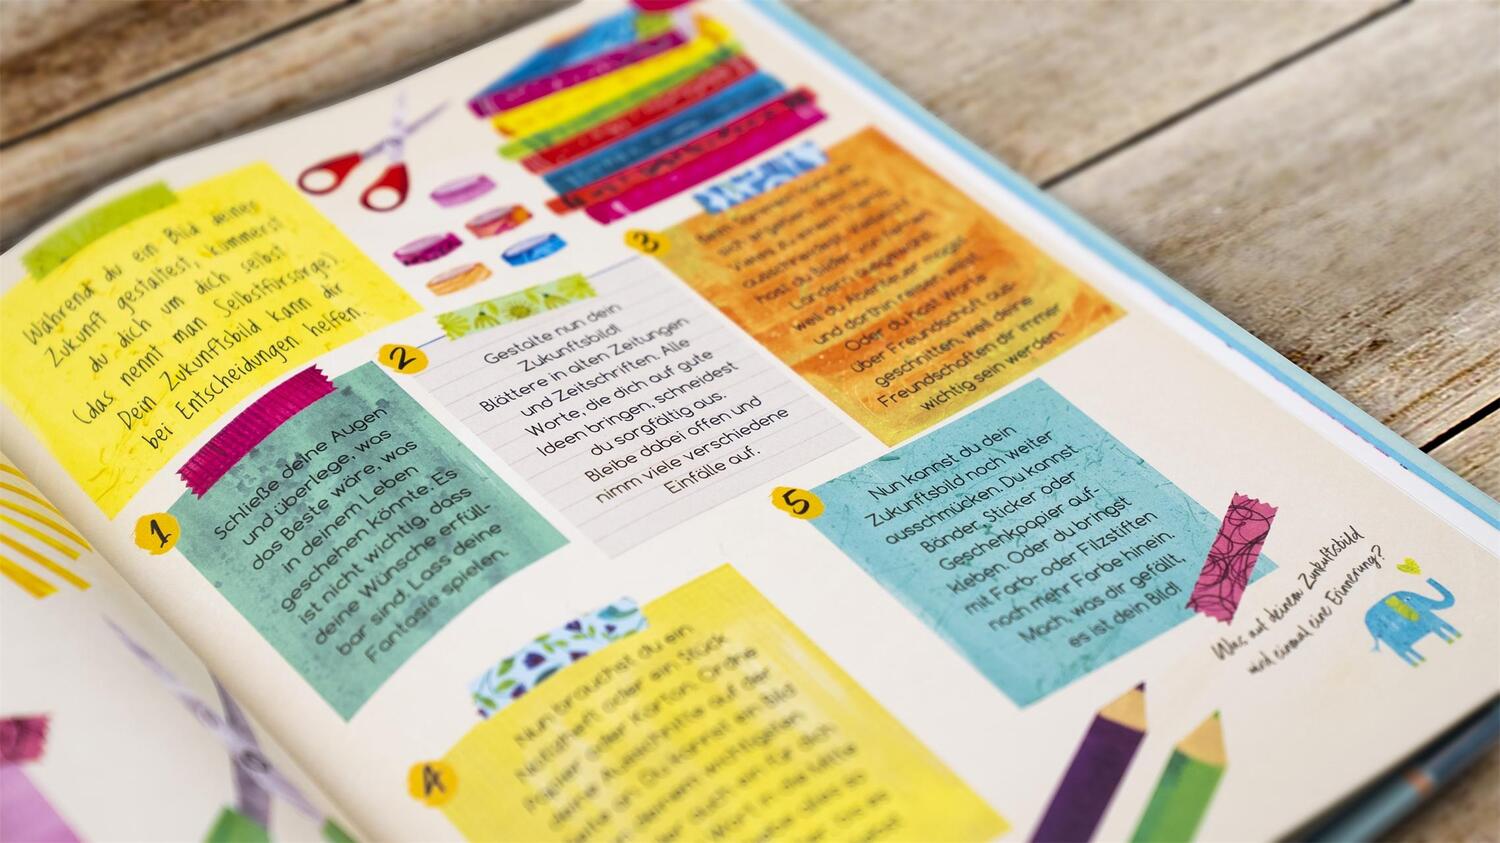 Während du ein Bild deiner
Zukunft gestaltest, kümmerst
du dich um dich selbst
(das nennt man Selbstfürsorge).
Dein Zukunftsbild kann dir
bei Entscheidungen helfen.
1
Schließe deine Augen
und überlege, was
das Beste wäre, was
in deinem Leben
geschehen könnte. Es
ist nicht wichtig, dass
deine Wünsche erfüll-
bar sind. Lass deine
Fantasie spielen.
2
Gestalte nun dein
Zukunftsbild!
Blättere in alten Zeitungen
und Zeitschriften. Alle
Worte, die dich auf gute
Ideen bringen, schneidest
du sorgfältig aus.
Bleibe dabei offen und
nimm viele verschiedene
Einfälle auf.
3
hast du Bilder von fernen
Ländern ausgewählt,
weil du Abenteuer magst
und dorthin reisen willst.
Oder du hast Worte
über Freundschaft aus-
geschnitten, weil deine
Freundschaften dir immer
wichtig sein werden.
4
Nun brauchst du ein
Notizheft oder ein Stück
Papier oder Karton. Ordne
deine Ausschnitte auf der
5
Nun kannst du dein
Zukunftsbild noch weiter
ausschmücken. Du kannst
Bänder, Sticker oder
Geschenkpapier auf-
kleben. Oder du bringst
mit Farb- oder Filzstiften
noch mehr Farbe hinein.
Mach, was dir gefällt,
es ist dein Bild!
Was auf deinem Zunkuftsbild
wird einmal eine Erinnerung?